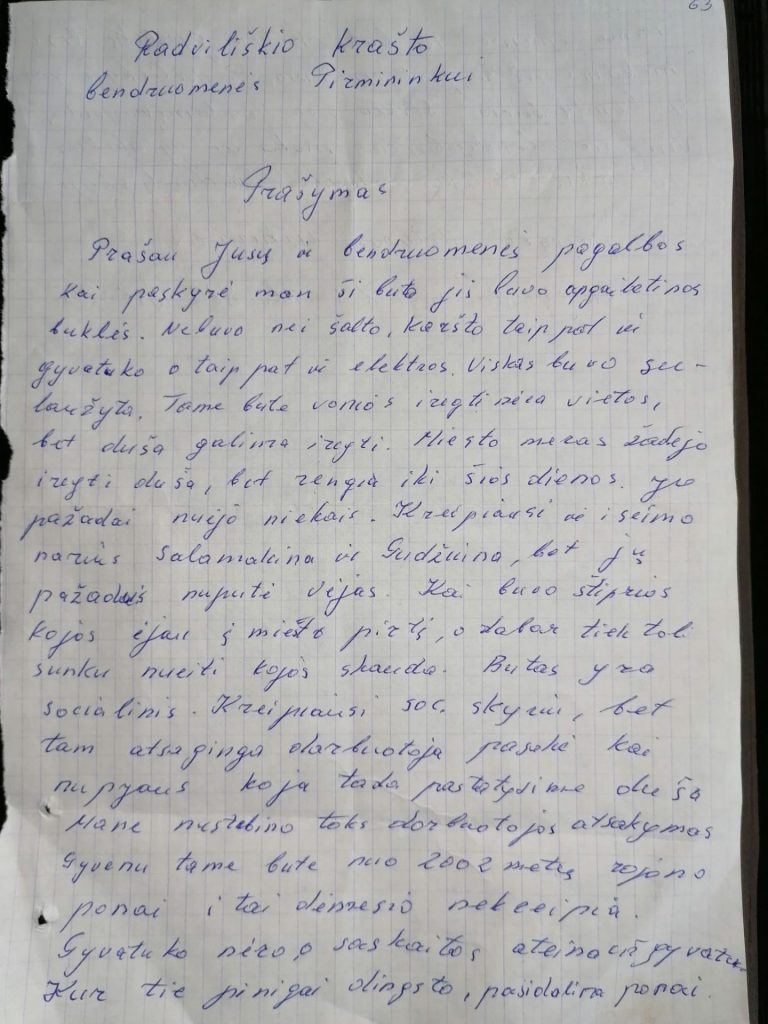 63
Radviliškio krašto
bendruomenės Pirmininkui
Prašymas
Prašau Jusų ir bendruomenės pagalbos
kai paskyrė man ši buta jis buvo apgaitetinos
buklės. Nebuvo nei šalto, karšto taip pat ir
gyvatuko o taip pat ir elektros. Viskas buvo su-
laužyta. Tame bute vonios iregti nėra vietos,
bet duša galima iregti. Miesto meras žadėjo
iregti duša, bet rengia iki šios dienos. Jo
pažadai nuėjo niekais. Kreipiausi ir i seimo
narius Salamakina ir Gudžiuina, bet jų
pažadus nuputė vėjas. Kai buvo stiprios
kojos ėjau į miesto pirtį, o dabar tiek toli
sunku nueiti kojos skauda. Butas yra
socialinis. Kreipiausi soc. skyriu, bet
tam atsaginga darbuotoja pasakė kai
nupjaus koja tada pastatysime duša
Mane nustebino toks darbuotojos atsakymas
Gyvenu tame bute nuo 2002 metų rojono
ponai i tai dėmesio nekreipia.
Gyvatuko nėra, o saskaitos ateina už gyvatu-
Kur tie pinigai dingsto, pasidalina ponai.